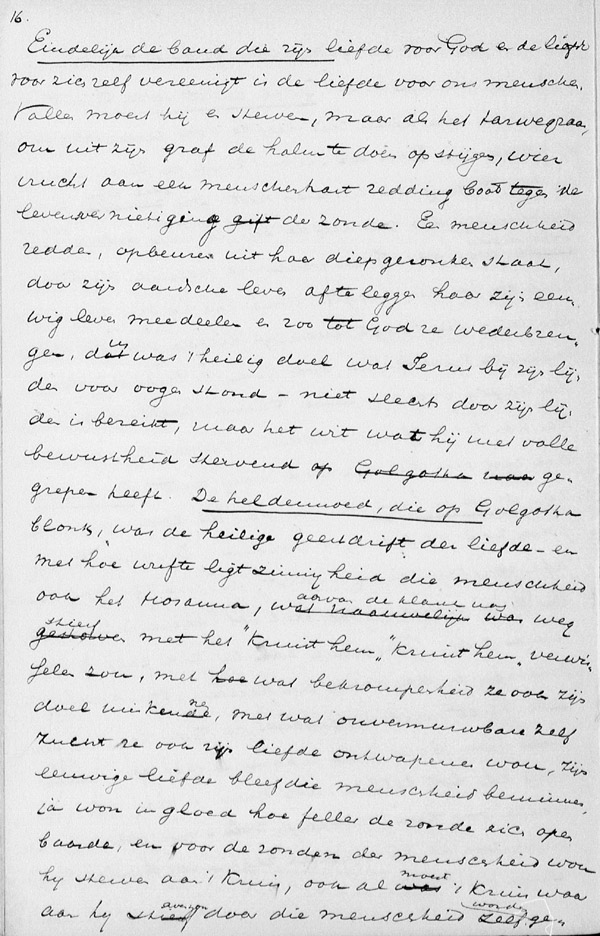 16.
Eindelijk de band die zijn liefde voor God en de liefde
voor zich zelf vereenigt is de liefde voor ons menschen.
Vallen moest hij en sterven, maar als het tarwegraan,
om uit zijn graf de halm te doen opstijgen, wier
vrucht aan een menschenhart redding bood tegen de
levensvernietiging gift der zonde. Een menschheid
redden, opbeuren uit haar diepgezonken staat,
door zijn aardsche leven afteleggen haar zijn eeu-
wig leven meedeelen en zoo tot God te wederbren-
gen, dat was 't heilig doel wat Jezus bij zijn lij-
den voor oogen stond - niet slechts door zijn lij-
den is bereikt, maar het wit wat hij met volle
bewustheid stervend op Golgotha naar ge-
grepen heeft. De heldenmoed, die op Golgotha
blonk, was de heilige geestdrift der liefde - en
met hoe wufte ligtzinnigheid die menschheid
ook het Hosanna, waarvan de klank nog
wat naauwelijks was weg
stierf
met het "Kruist hem" "Kruist hem" verwis-
selen zou, met hoe wat bekrompenheid ze ook zijn
doel miskende, met wat onvermurwbare zelf
zucht ze ook zijn liefde ontwapenen wou, zijn
eeuwige liefde bleef die menschheid beminnen,
ja won in gloed hoe feller de zonde zich open
baarde, en voor de zonden der menschheid wou
hij sterven aan 't Kruis, ook al was moest 't Kruis waar
aan hij stierf door die menschheid zelf worden ge-